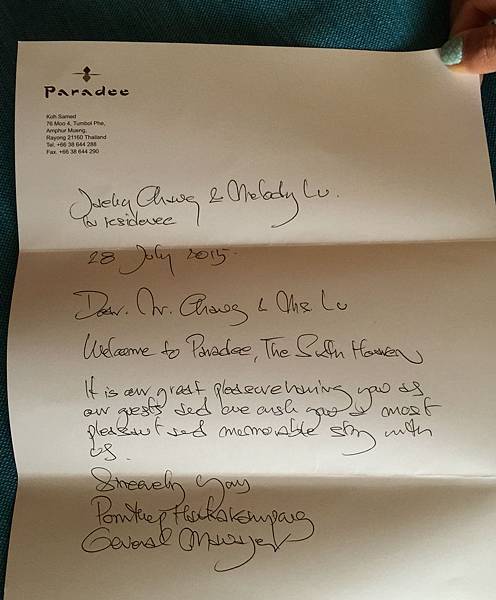 Paradee
Koh Samed
76 Moo 4, Tumbol Phe,
Amphur Mueng,
Rayong 21160 Thailand
Tel: +66 38 644 288
Fax. +66 38 644 290
Chang & Melody Lu.
In residence
28 July 2015.
Dear. Mr. Chang & Ms. Lu
Welcome to Paradee, The Sixth Heaven
It is our great pleasure having you as
our guests and we wish you a most
pleasant and memorable stay with
us.
Sincerely yours
Pornthep
General Manager